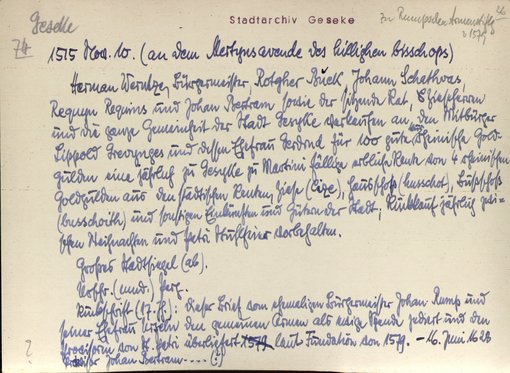 Geseke
Stadtarchiv Geseke
Zu Rumpschen Armenstiftg
v 1579
74
1515 Nov. 10. (an dem Mertynsavende des hilligen bisschops)
Herman Bürgermeister, Rotgher Buek, Johann Schathvas,
Reguyn Requins und Johan Bertram sowie der sitzende Rat,
und die ganze Gemeinheit der Stadt Geseke verkaufen an den Mitbürger
Lippold Grevynges und dessen Ehefrau Gerdrud für 100 gute rheinische Gold-
gulden eine jährlich zu Geseke zu Martini fällige erbliche Rente von 4 rheinischen
Goldgulden aus den städtischen Renten, Ziese (Cize), Hausschoß (husschot), Busschoß
(busschoith) und sonstigen Einkünften und Gütern der Stadt, Rückkauf jährlich zwi-
schen Weihnachten und Petri Stuhlfeier vorbehalten.
Großes Stadtsiegel (ab).
Ausf. (mnd.) Perg.
Rückschrift (17. Jh.): dieser Brief vom ehemaligen Bürgermeister Johan Rump und
seiner Ehefrau den gemeinen Armen als ewige Spende zediert und den
Provisoren von St. Petri überliefert 1579 laut Fundation von 1579. – 16. Juni 1628
Johan Bertram .... (?)
?